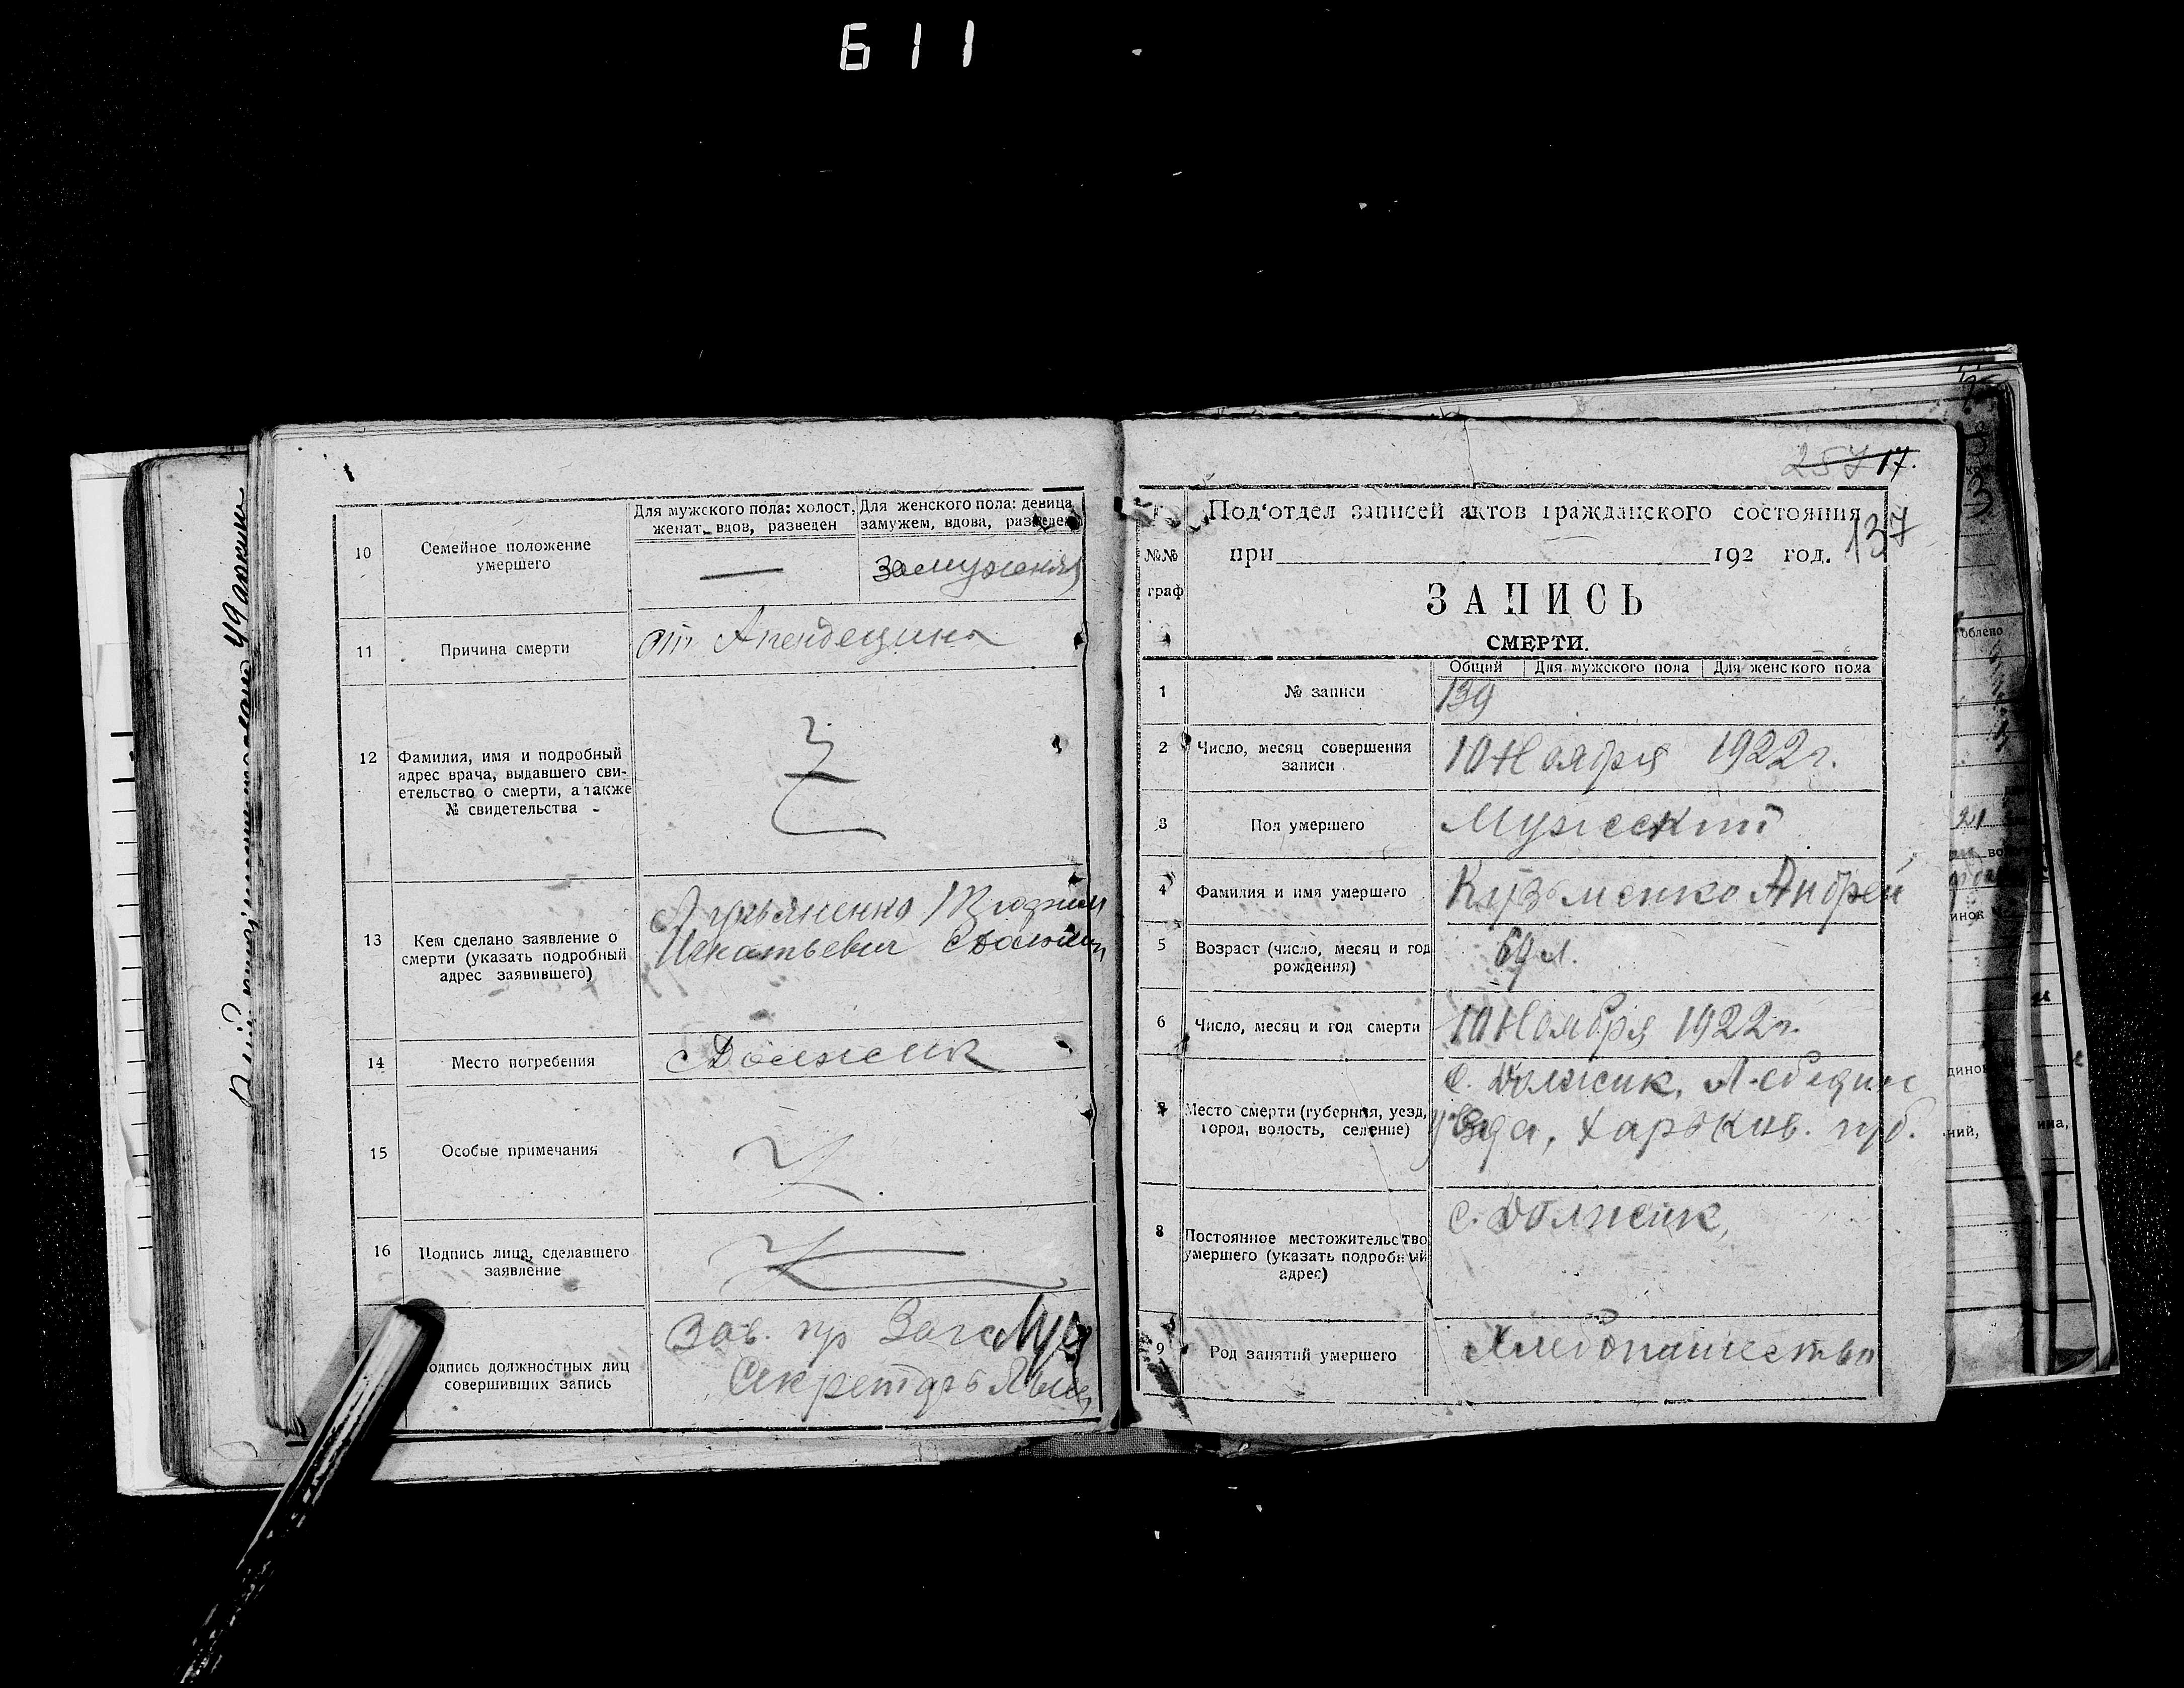 611
10
Семейное положение
умершего
Для мужского пола: холост,
женат, вдов, разведен
Для женского пола: девица,
замужем, вдова, разведена
замужняя
11
Причина смерти
от
12
Фамилия, имя и подробный
адрес врача, выдавшего сви-
етельство о смерти, а также
№ свидетельства
13
Кем сделано заявление о
смерти (указать подробный
адрес заявившего)
Лукьяненко
Игнатьевич
14
Место погребения
Должик
15
Особые примечания
16
Подпись лица, сделавшего
заявление
одпись должностных лиц
совершивших запись
Зав. пр Загс
Секретарь
257 17.
137
Под'отдел записей актов гражданского состояния
№№
граф
при 192 год.
ЗАПИСЬ
СМЕРТИ.
Общий Для мужского пола Для женского пола
1
№ записи
139
2
Число, месяц совершения
записи
10 Ноября 1922 г.
3
Пол умершего
Мужеский
4
Фамилия и имя умершего
Кузьменко Андрей
5
Возраст (число, месяц и год
рождения)
69 л.
6
Число, месяц и год смерти
10 Ноября 1922 г.
7
Место смерти (губерния, уезд,
город, волость, селение)
с. Должик, Лебедин
уезда, Харьков. губ.
8
Постоянное местожительство
умершего (указать подробный
адрес)
с. Должик,
9
Род занятий умершего
Хлебопашество